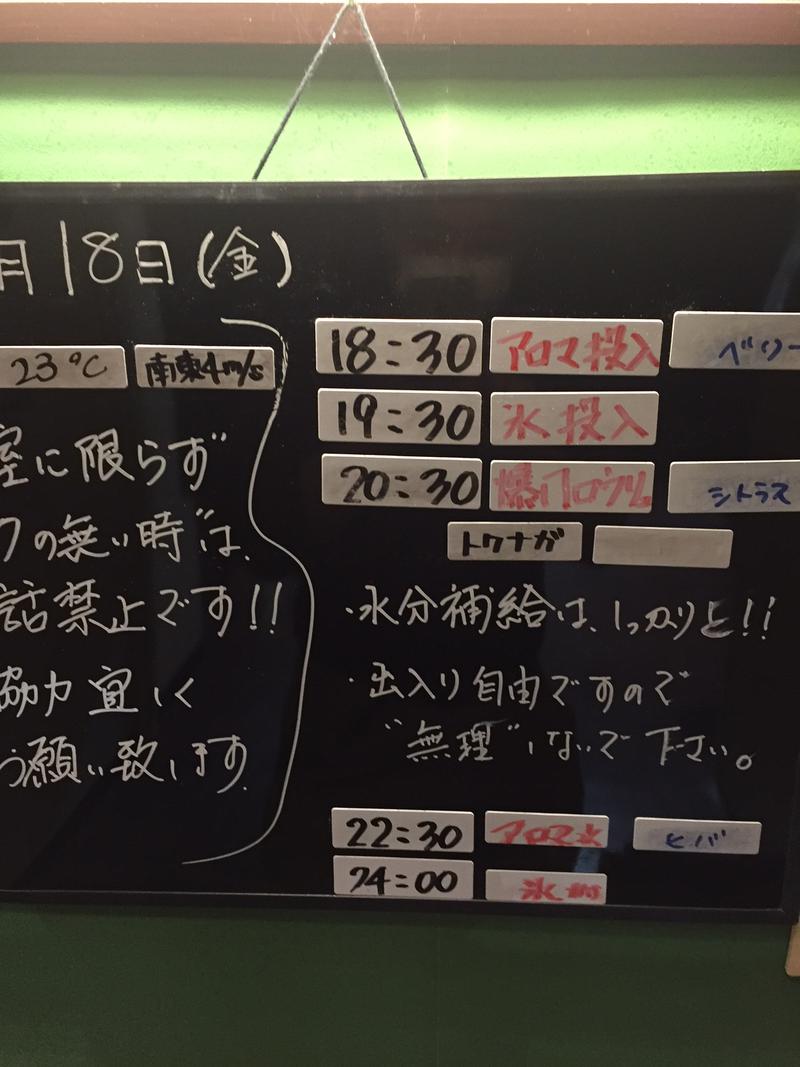 月18日(金)
23℃ 南東4m/s
室に限らず
クの無い時"は、
話禁止です!!
協力宜しく
お願い致します.
18:30 アロマ投入 ベリー
19:30 氷投入
20:30 爆風ロウリュ シトラス
トクナガ
・水分補給は、しっかりと!!
・出入り自由ですので
"無理"しないで下さい。
22:30 アロマ水 ヒバ
24:00 氷